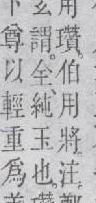 用瓚。伯用將。注鄭
玄謂。全。純玉也。瓚
下尊以輕重爲